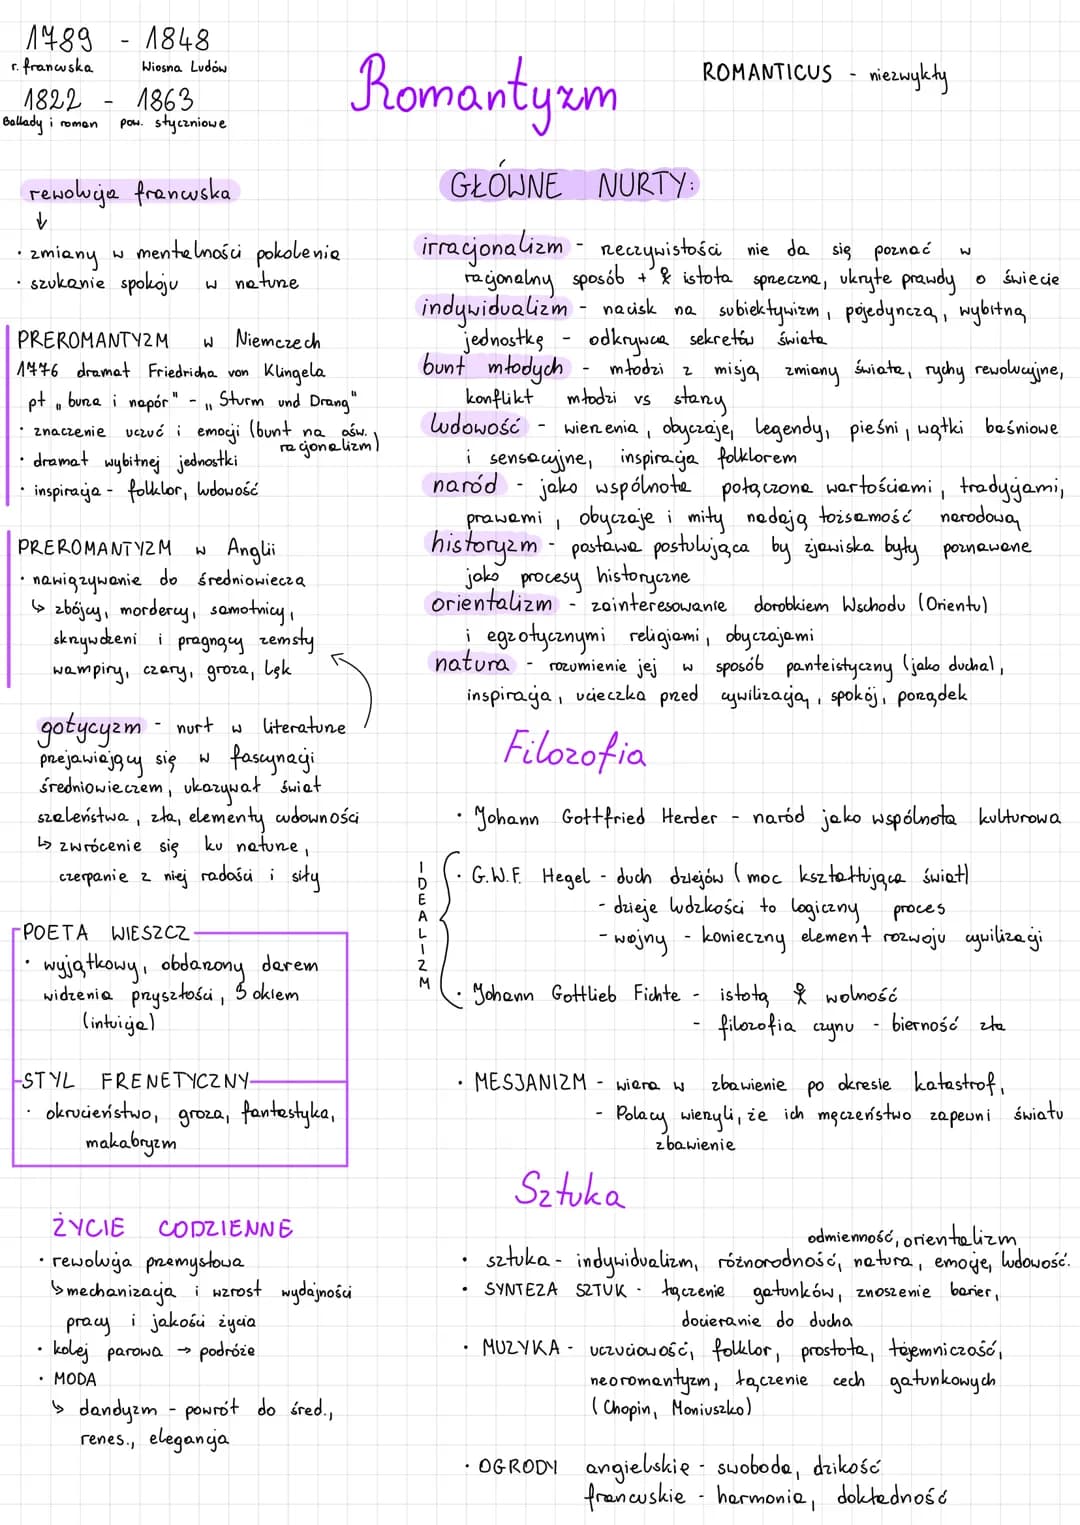 1789 - 1848
r. francuska Wiosna Ludów
1822 - 1863
Ballady i roman pow. styczniowe
Romantyzm
ROMANTICUS - niezwykły
rewolucja francuska
↓
· zmiany w mentalności pokolenia
· szukanie spokoju w naturze
PREROMANTYZM w Niemczech
1776 dramat Friedricha von Klingela
pt „burza i napór" - „Sturm und Drang"
· znaczenie uczuć i emocji (bunt na ośw. racjonalizm)
· dramat wybitnej jednostki
· inspiracja - folklor, ludowość
PREROMANTYZM w Anglii
· nawiązywanie do średniowiecza
↳ zbójcy, mordercy, samotnicy,
skrzywdzeni i pragnący zemsty
wampiry, czary, groza, lęk
gotycyzm - nurt w literaturze
przejawiający się w fascynacji
średniowieczem, ukazywał świat
szaleństwa, zła, elementy cudowności
↳ zwrócenie się ku naturze,
czerpanie z niej radości i siły
POETA WIESZCZ
· wyjątkowy, obdarzony darem
widzenia przyszłości, 3 okiem
(intuicja)
STYL FRENETYCZNY
· okrucieństwo, groza, fantastyka,
makabryzm
ŻYCIE CODZIENNE
· rewolucja przemysłowa
↳ mechanizacja i wzrost wydajności
pracy i jakości życia
· kolej parowa → podróże
· MODA
↳ dandyzm - powrót do śred.,
renes., elegancja
GŁÓWNE NURTY:
irracjonalizm - rzeczywistości nie da się poznać w
racjonalny sposób + istota sprzeczna, ukryte prawdy o świecie
indywidualizm - nacisk na subiektywizm, pojedynczą, wybitną
jednostkę - odkrywca sekretów świata
bunt młodych - młodzi z misją zmiany świata, ruchy rewolucyjne,
konflikt młodzi vs starzy
ludowość - wierzenia, obyczaje, legendy, pieśni, wątki baśniowe
i sensacyjne, inspiracja folklorem
naród - jako wspólnota połączona wartościami, tradycjami,
prawami, obyczaje i mity nadają tożsamość narodową
historyzm - postawa postulująca by zjawiska były poznawane
jako procesy historyczne
orientalizm - zainteresowanie dorobkiem Wschodu (Orientu)
i egzotycznymi religiami, obyczajami
natura - rozumienie jej w sposób panteistyczny (jako ducha),
inspiracja, ucieczka przed cywilizacją, spokój, porządek
Filozofia
· Johann Gottfried Herder - naród jako wspólnota kulturowa
IDEALIZM
· G.W.F. Hegel - duch dziejów (moc kształtująca świat)
- dzieje ludzkości to logiczny proces
- wojny - konieczny element rozwoju cywilizacji
· Johann Gottlieb Fichte - istotą wolność
- filozofia czynu - bierność zła
· MESJANIZM - wiara w zbawienie po okresie katastrof,
- Polacy wierzyli, że ich męczeństwo zapewni światu
zbawienie
Sztuka
odmienność, orientalizm
· sztuka - indywidualizm, różnorodność, natura, emocje, ludowość.
· SYNTEZA SZTUK - łączenie gatunków, znoszenie barier,
docieranie do ducha
· MUZYKA - uczuciowość, folklor, prostota, tajemniczość,
neoromantyzm, łączenie cech gatunkowych
(Chopin, Moniuszko)
· OGRODY angielskie - swoboda, dzikość
francuskie - harmonia, dokładność